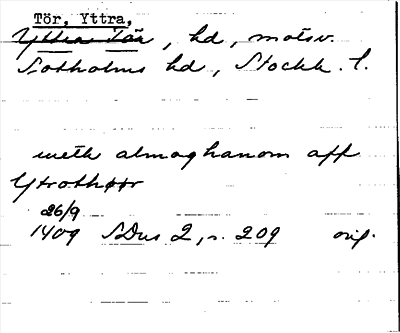 Tör, Yttra,
Yttra Tör, hd, motsv.
Sotholms hd, Stockh. l.
meth almoghanom aff
Ytrothør
26/9
1409 SDns 2, s. 209 orig.